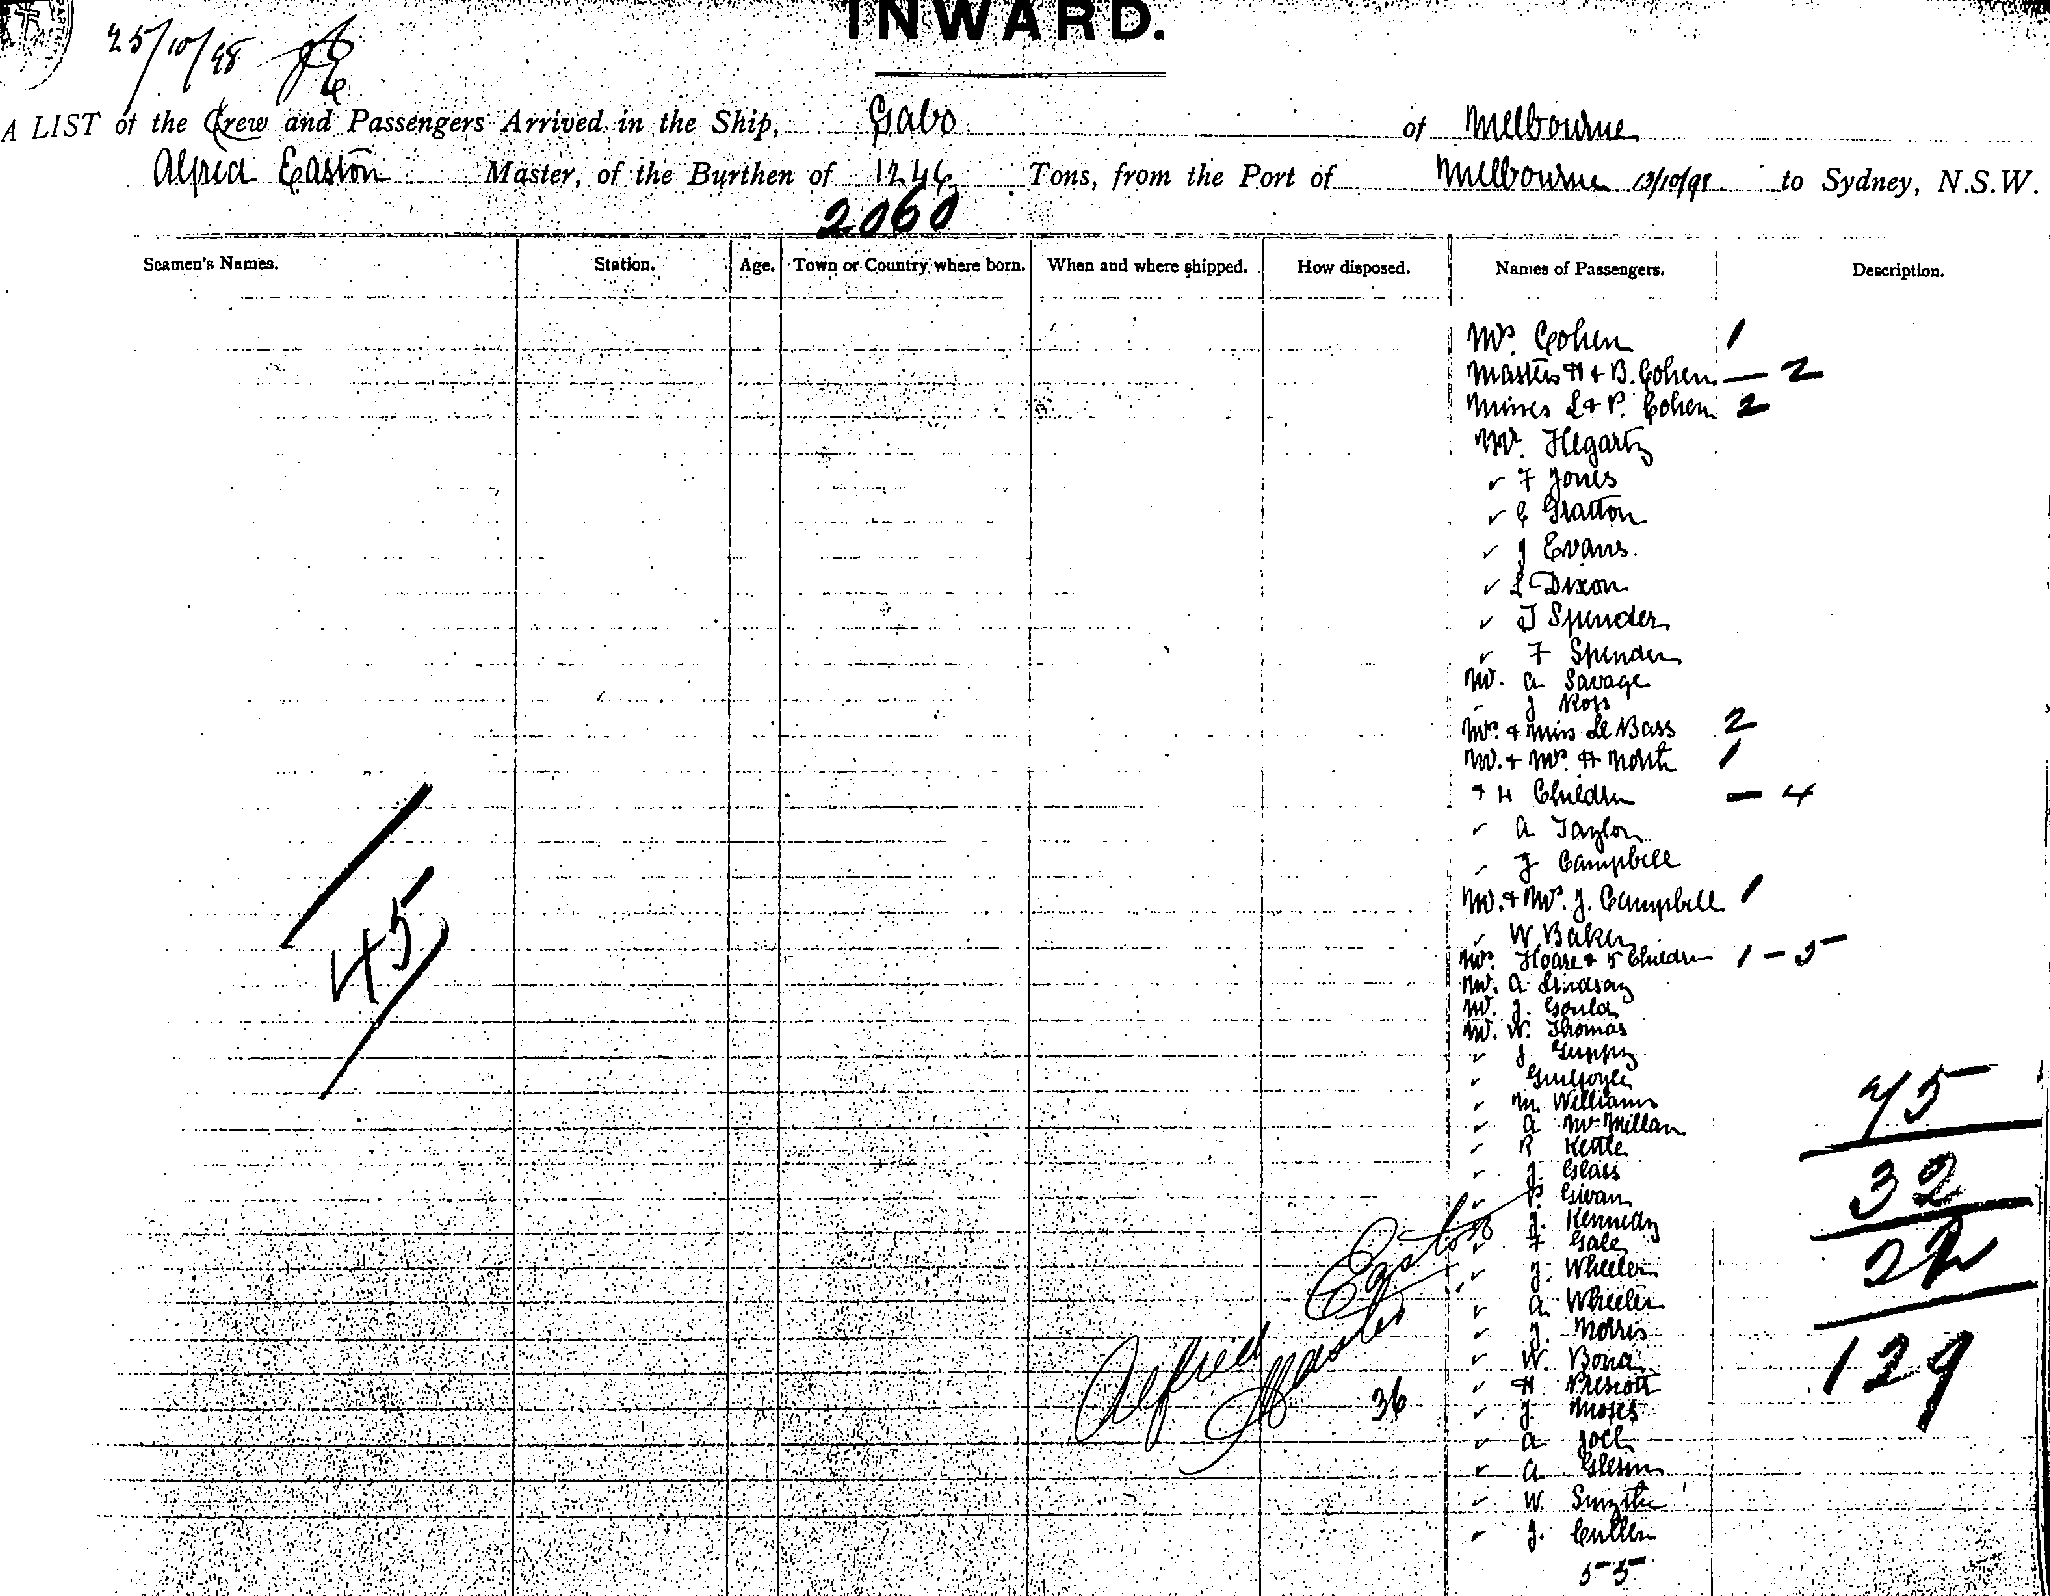 INWARD.
25/10/98
A LIST of the Crew and Passengers Arrived in the Ship, Gabo of Melbourne
Alfred Easton Master, of the Burthen of 1244 Tons, from the Port of Melbourne 13/10/98 to Sydney, N.S.W.
2060
Seamen's Names. Station. Age. Town or Country where born. When and where shipped. How disposed. Names of Passengers. Description.
Mrs. Cohen 1
Masters H & B. Cohen — 2
Misses L & P. Cohen 2
Mr. Hegarty
✓ F Jones
✓ C Gratton
✓ J Evans.
✓ L Dixon
✓ T Spender
✓ F Spender
Mr. A Savage
J Ross
Mrs. & Miss Le Bass 2
Mr. & Mrs. H North 1
& 4 Children — 4
✓ A Taylor
✓ J Campbell
Mr. & Mrs. J. Campbell 1
✓ W Baker
Mrs. Hoare & 5 Children 1 — 5
Mr. A Lindsay
Mr. J. Gould
Mr. W. Thomas
✓ J Guppy
✓ Guilfoyle
✓ M. Williams
✓ A McMillan
✓ R Kettle
✓ J. Glass
✓ P. Giwan
J. Kennedy
✓ F Gale
✓ J. Wheeler
✓ A Wheeler
✓ J. Norris
✓ W. Bona
✓ H Prescott
✓ J. Moses
✓ A Joel
✓ A Gleson
✓ W. Smythe
✓ J. Cullen
55
45
Alfred Easton
Master
36
75
32
22
129